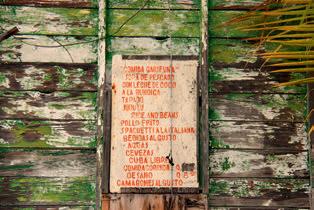 "COMIDA GARIFUNA"
SOPA DE PESCADO
CON LECHE DE COCO
A LA BURUDICA
TAPADO
RICE AND BEANS
POLLO FRITO
SPAGUETTI A LA ITALIANA
BEBIDAS AL GUSTO
AGUAS
CEVEZAS
CUBA LIBRE
COMIDA CORRIDA
DESAYUNO
CAMARONES AL GUSTO